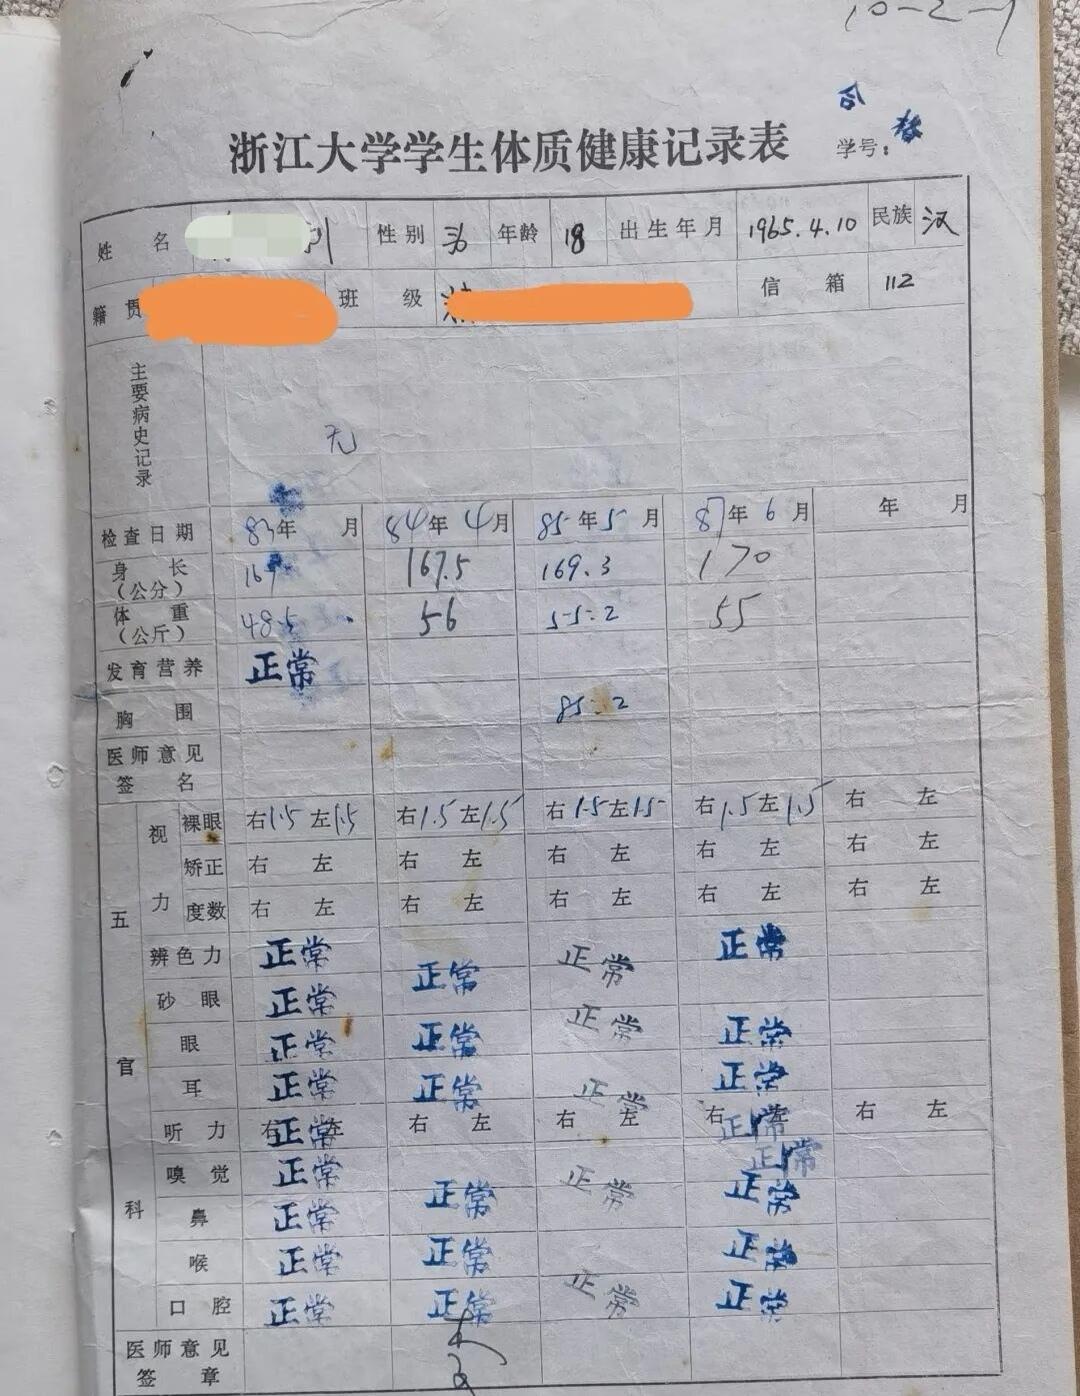 10-2-1
合格
浙江大学学生体质健康记录表 学号:
姓名 刚 性别 男 年龄 18 出生年月 1965.4.10 民族 汉
籍贯 班级 信箱 112
主要病史记录 无
检查日期 83年 月 84年4月 85年5月 87年6月 年 月
身长(公分) 167.5 169.3 170
体重(公斤) 48.5 56 55.2 55
发育营养 正常
胸围 85.2
医师意见签名
五官科
视力 裸眼 右1.5 左1.5 右1.5 左1.5 右1.5 左1.5 右1.5 左1.5 右 左
矫正 右 左 右 左 右 左 右 左 右 左
度数 右 左 右 左 右 左 右 左 右 左
辨色力 正常 正常 正常 正常
砂眼 正常 正常
眼 正常 正常 正常
耳 正常 正常 正常 正常
听力 右 正常 左 右 左 右 左 右 正常 右 左
嗅觉 正常 正常 正常
鼻 正常 正常 正常
喉 正常 正常 正常
口腔 正常 正常 正常 正常
医师意见签章